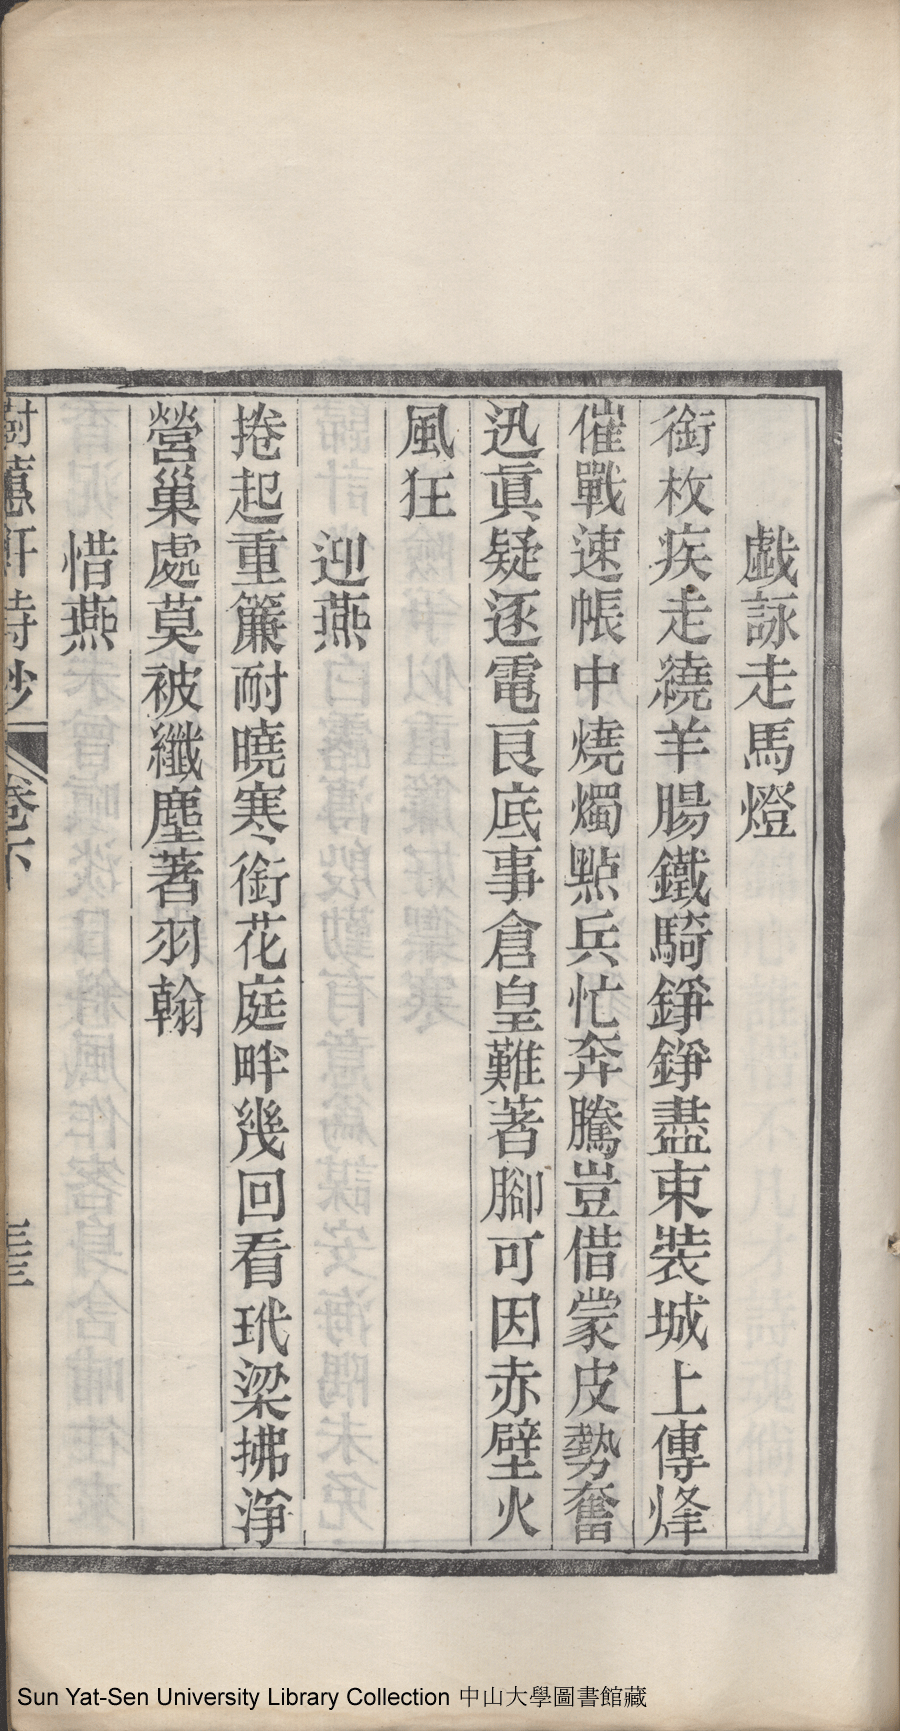 戲詠走馬燈
銜枚疾走繞羊腸鐵騎錚錚盡束裝城上傳烽
催戰速帳中燒燭點兵忙奔騰豈借蒙皮勢奮
迅眞疑逐電良底事倉皇難著腳可因赤壁火
風狂
迎燕
捲起重簾耐曉寒銜花庭畔幾回看玳梁拂淨
營巢處莫被纖塵著羽翰
惜燕
樹蕙軒詩鈔 卷下
Sun Yat-Sen University Library Collection 中山大學圖書館藏